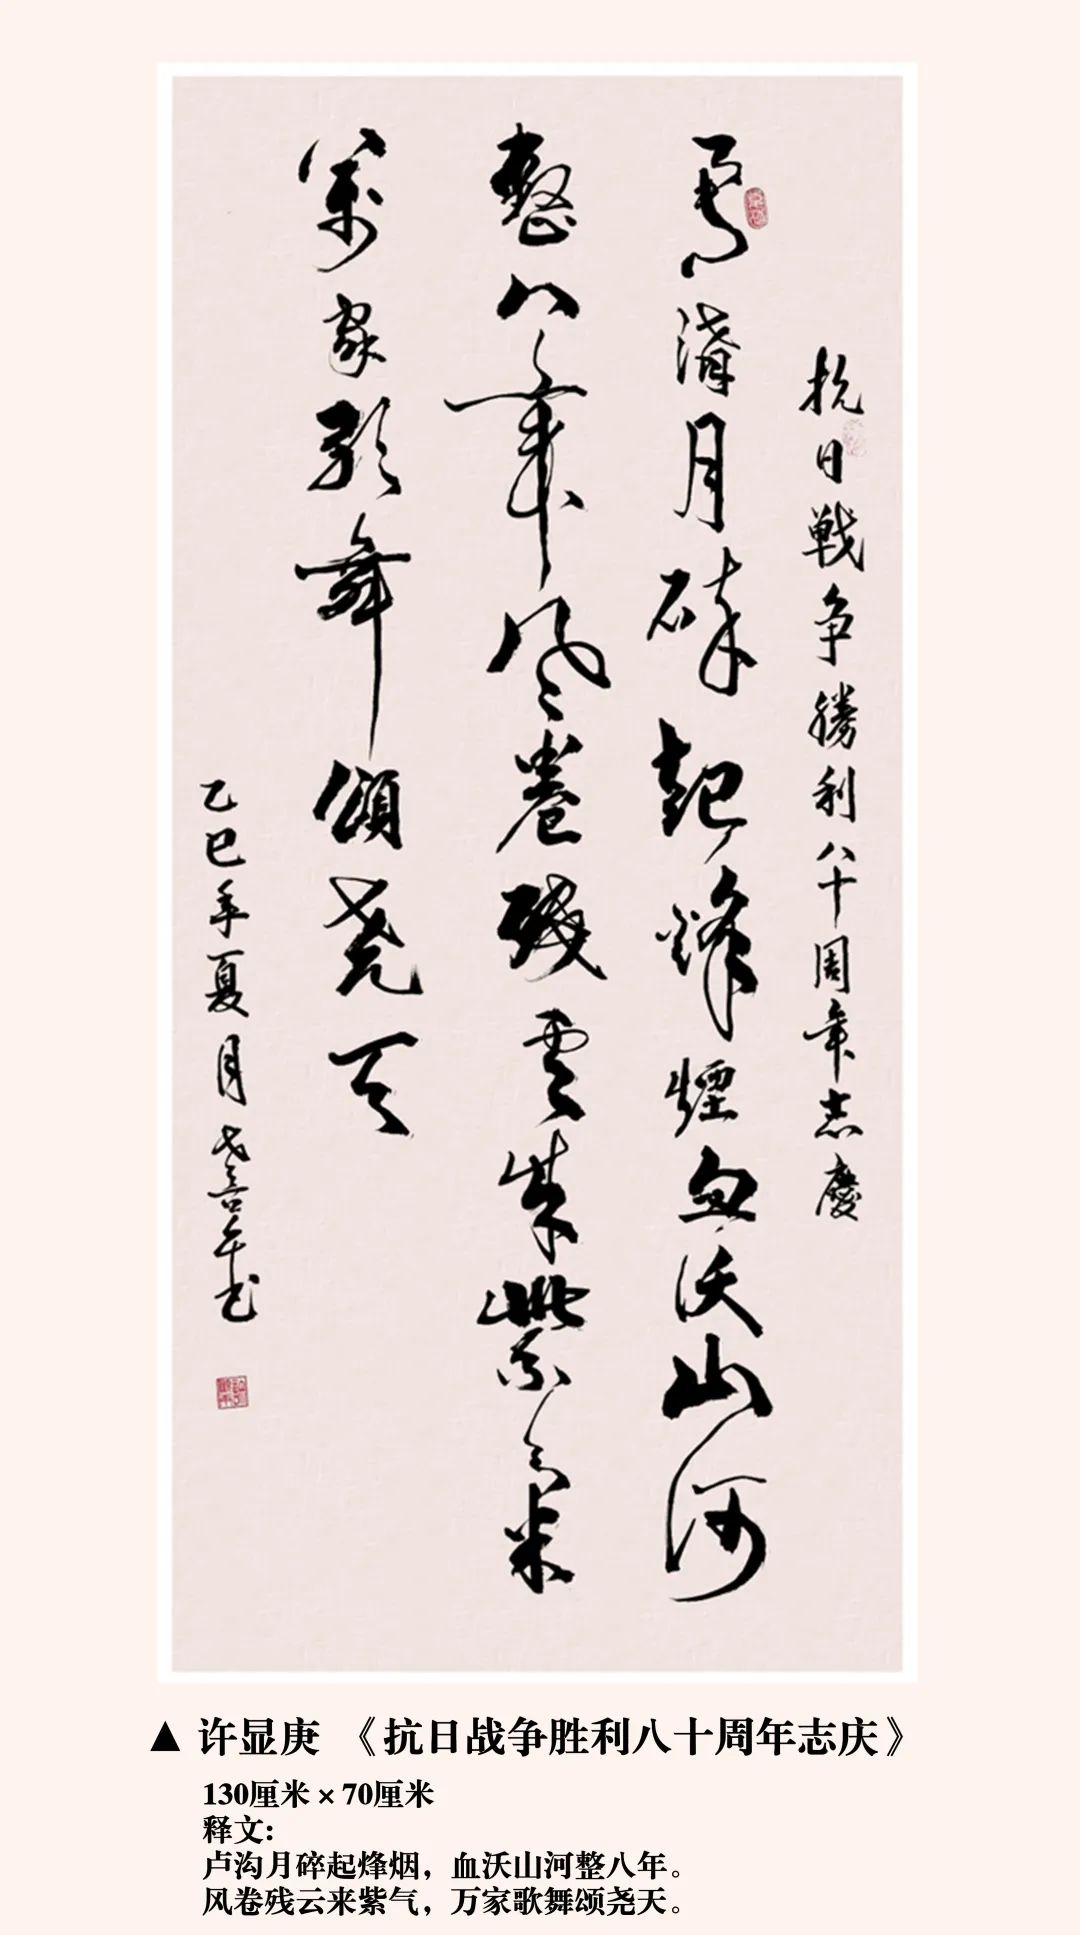 抗日戰争勝利八十周年志慶
盧溝月碎起烽煙血沃山河
整八年風卷殘雲來紫氣
萬家歌舞頌堯天
乙巳年夏月
▲ 许显庚 《抗日战争胜利八十周年志庆》
130厘米×70厘米
释文：
卢沟月碎起烽烟，血沃山河整八年。
风卷残云来紫气，万家歌舞颂尧天。